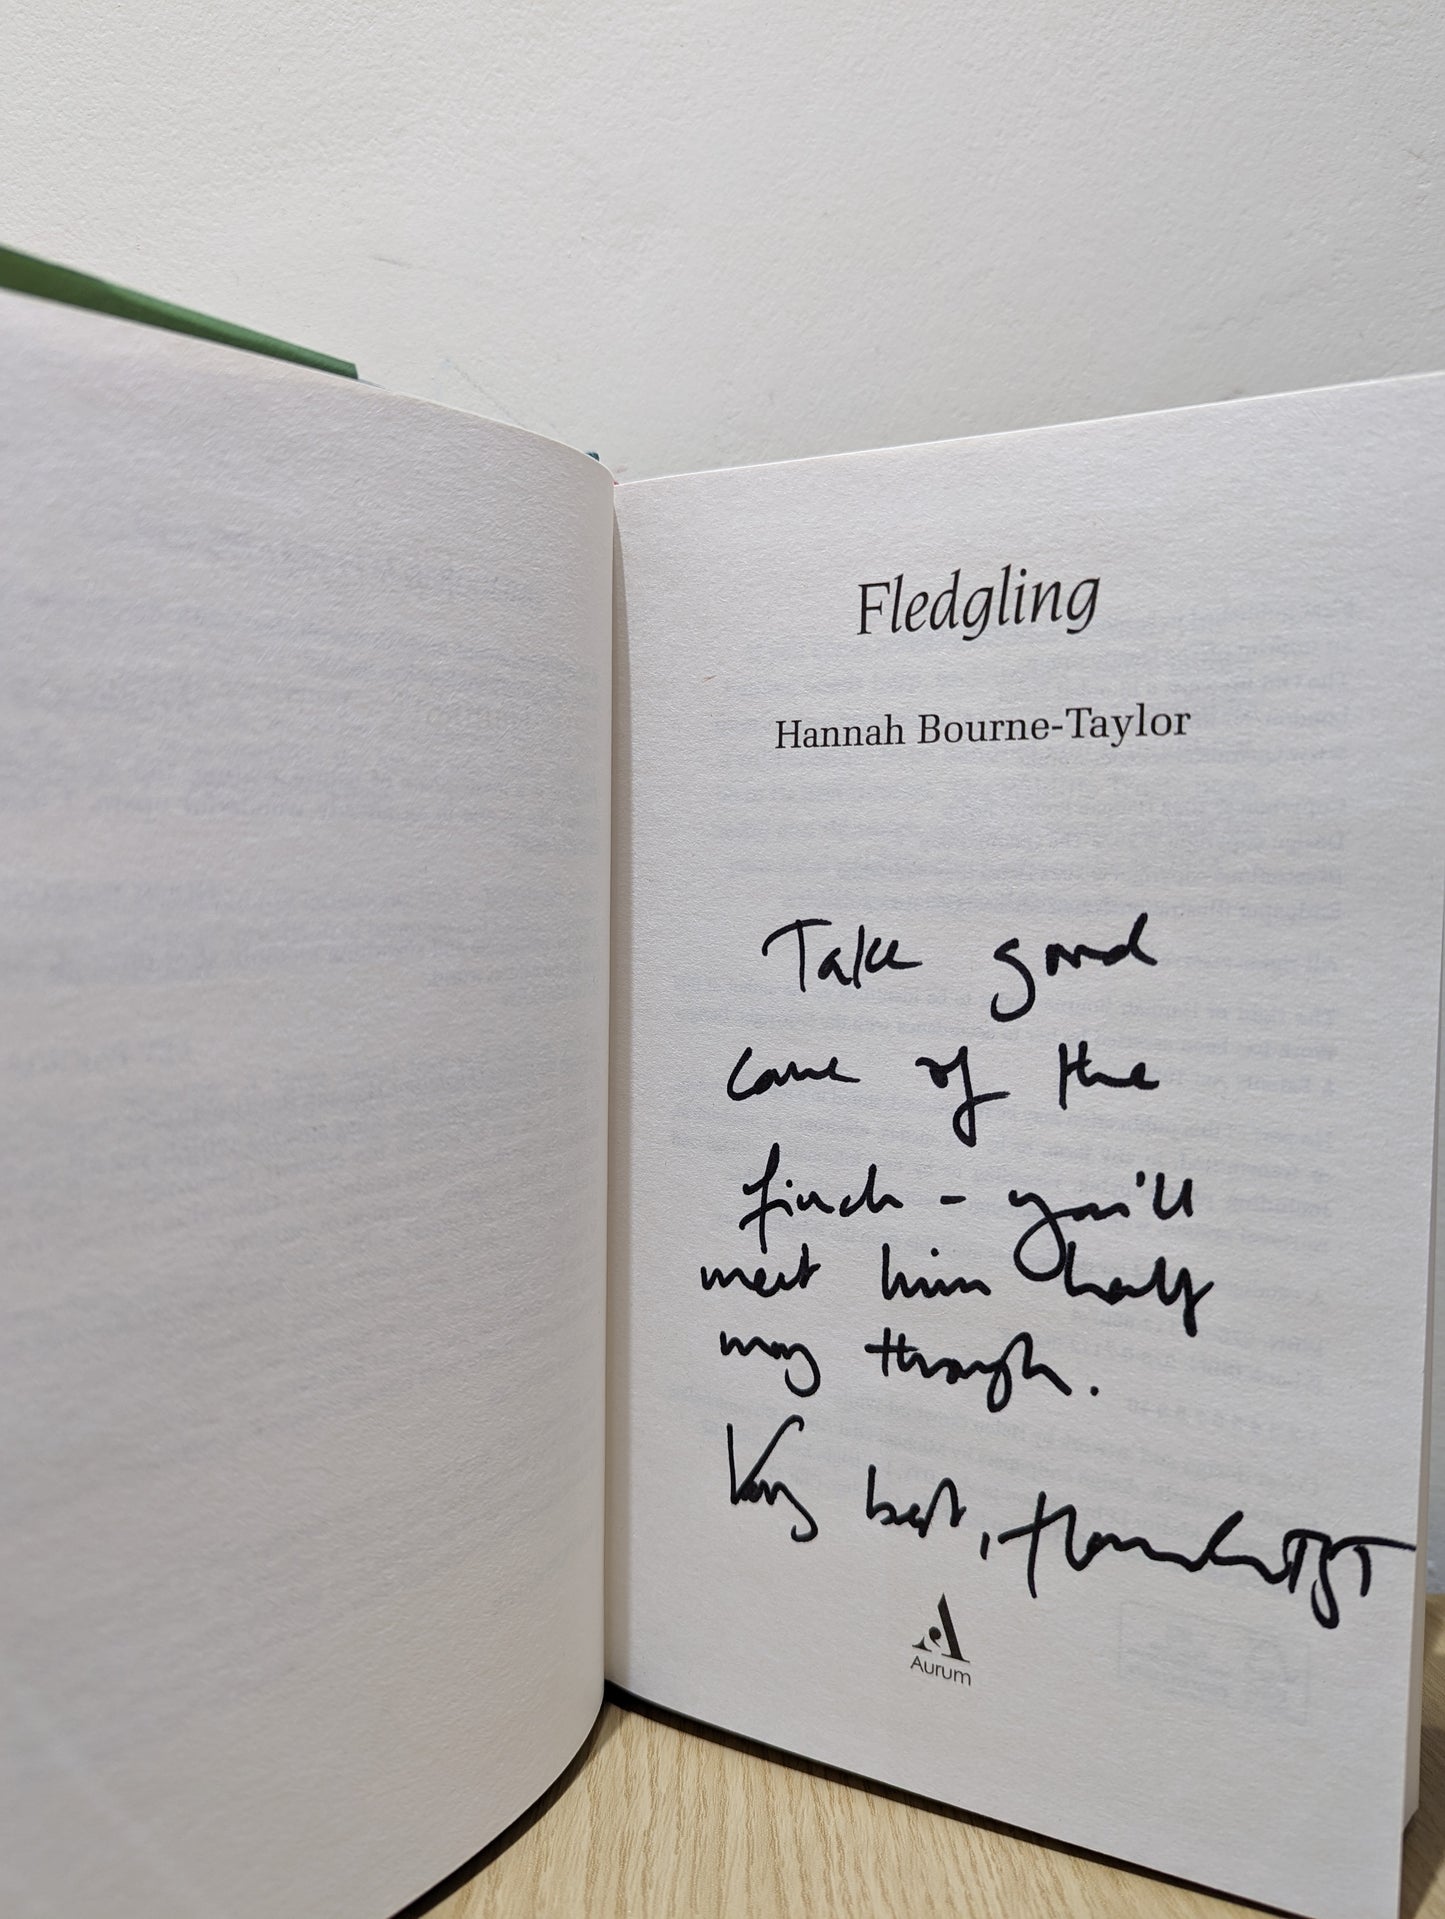 Fledgling
Hannah Bourne-Taylor
Take good
care of the
finch - you'll
meet him half
way through.
Very best, Hannah BT
Aurum